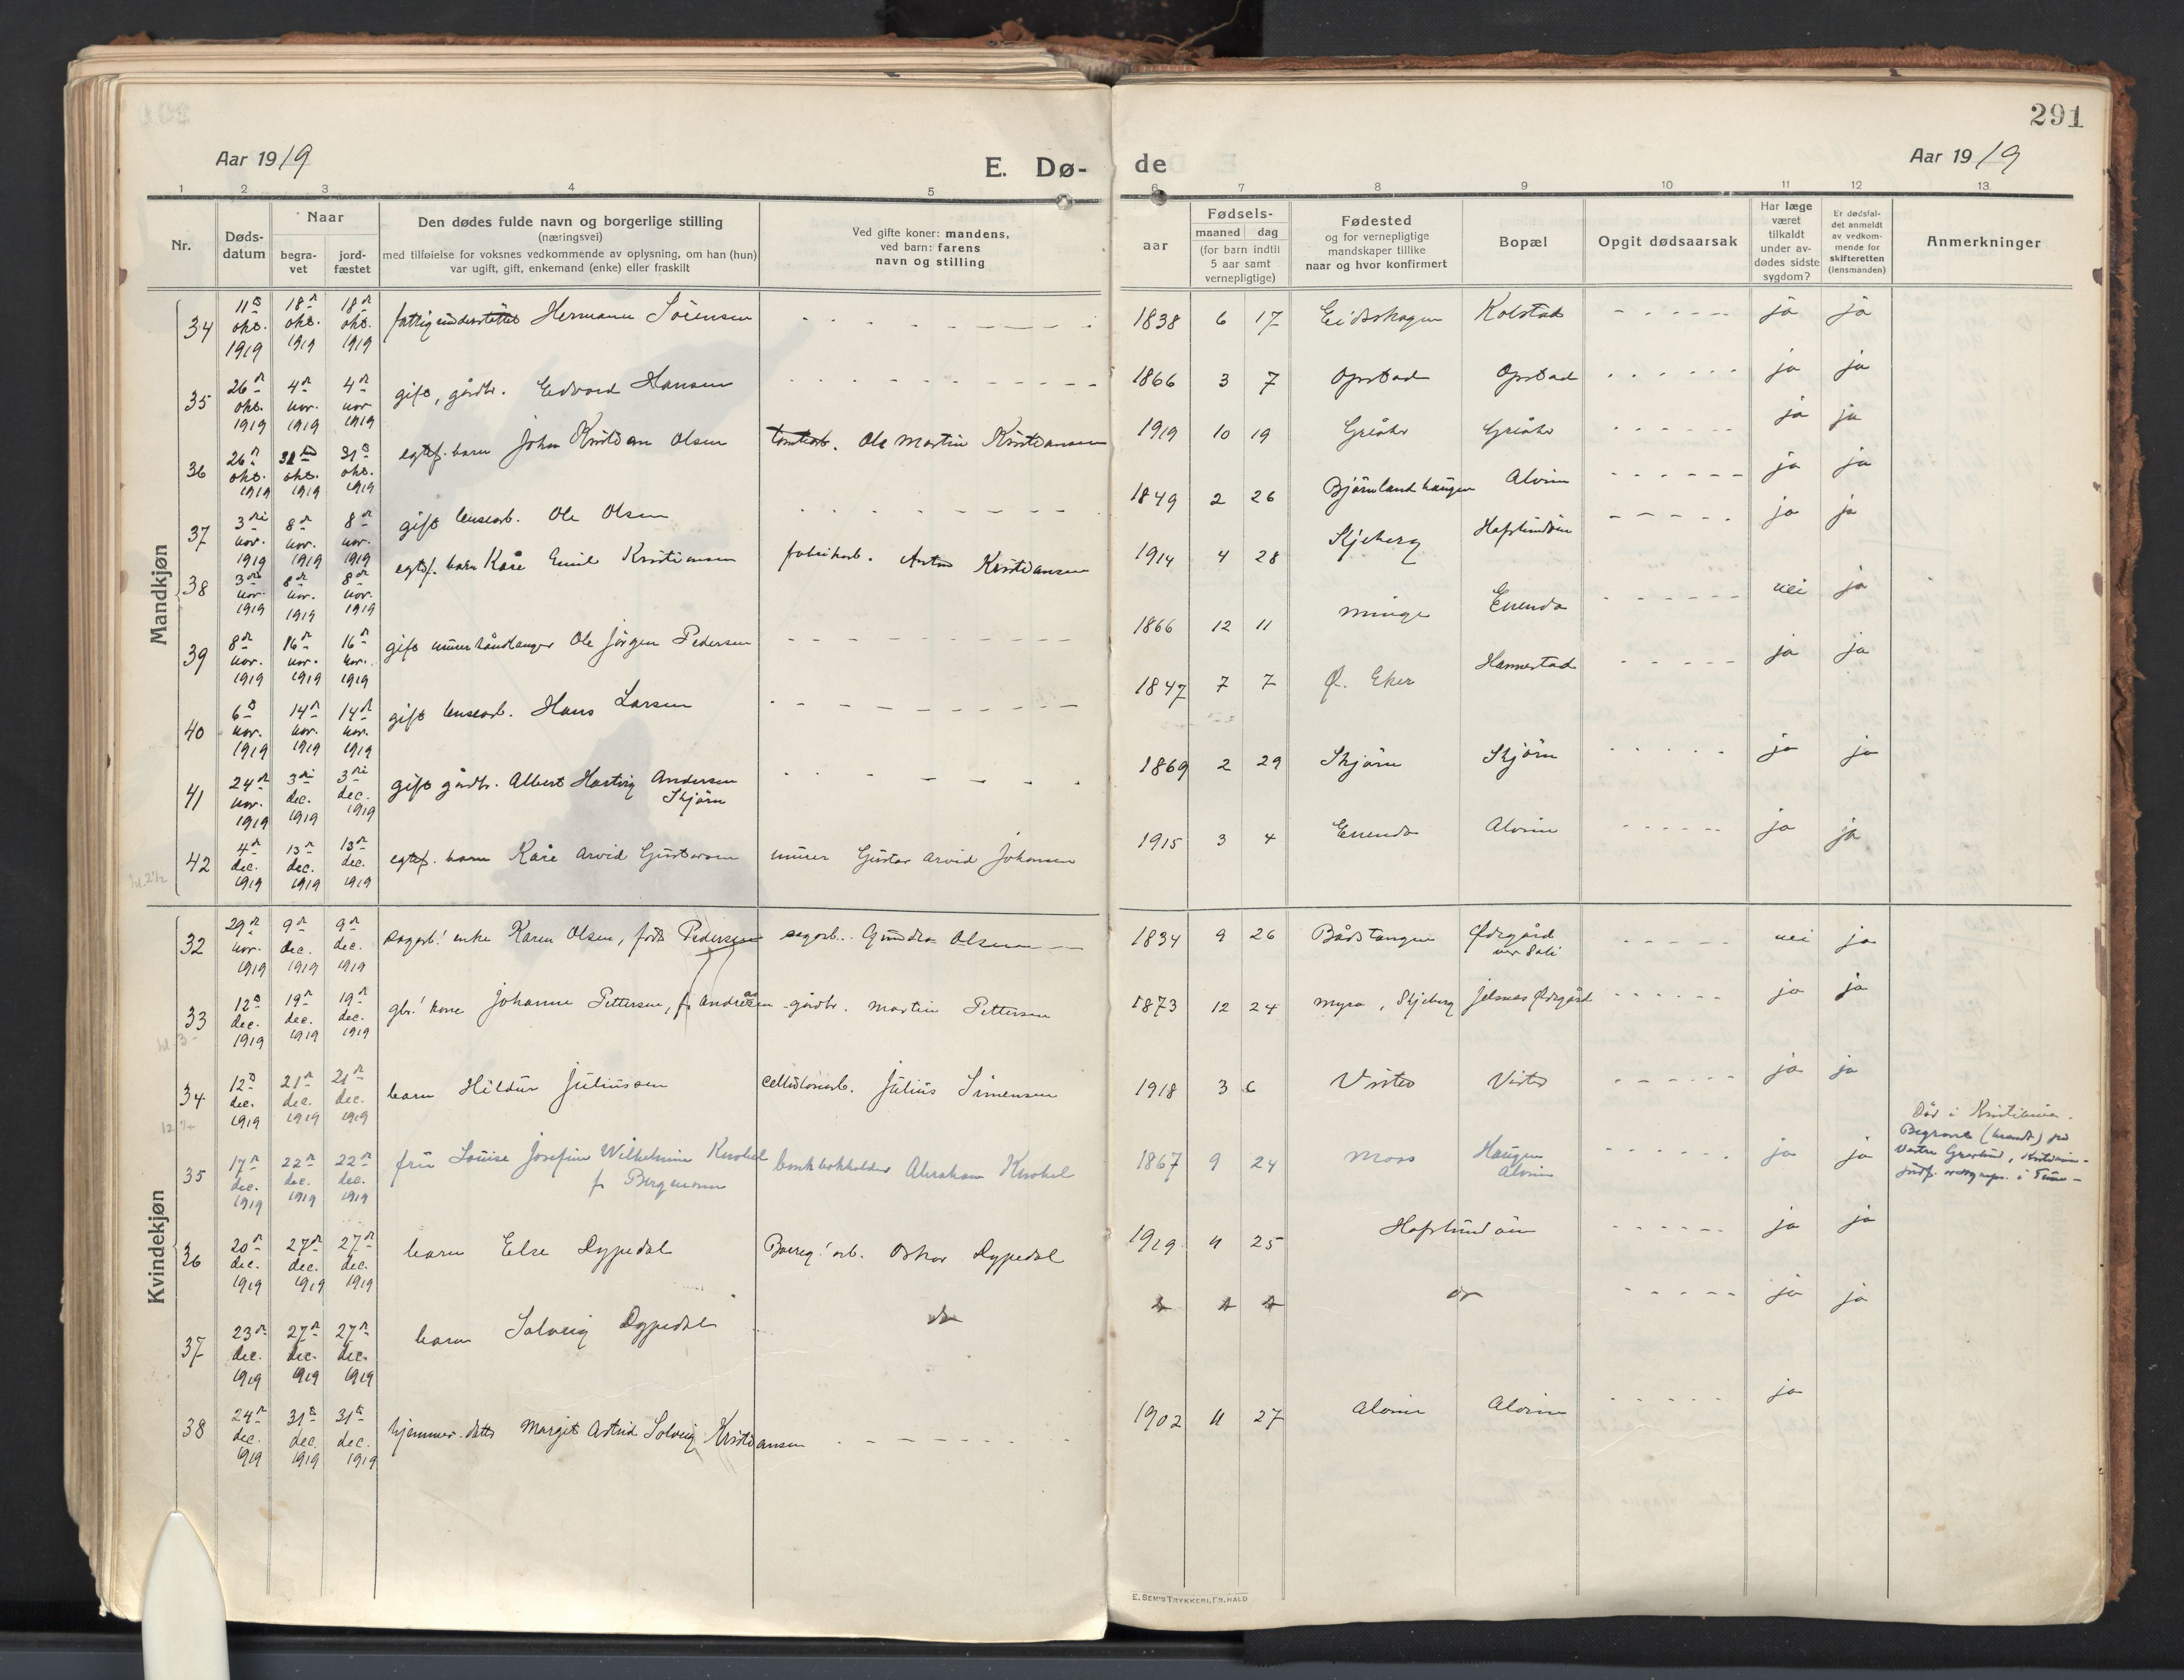 291
Aar 1919
E. Dø-
de
Aar 1919
1 2 3 4 5 6 7 8 9 10 11 12 13.
Nr.
Døds-
datum
Naar
begra-
vet
jord-
fæstet
Den dødes fulde navn og borgerlige stilling
(næringsvei)
med tilføielse for voksnes vedkommende av oplysning, om han (hun)
var ugift, gift, enkemand (enke) eller fraskilt
Ved gifte koner: mandens,
ved barn: farens
navn og stilling
aar
Fødsels-
maaned dag
(for barn indtil
5 aar samt
vernepligtige)
Fødested
og for vernepligtige
mandskaper tillike
naar og hvor konfirmert
Bopæl
Opgit dødsaarsak
Har læge
været
tilkaldt
under av-
dødes sidste
sygdom?
Er dødsfal-
det anmeldt
av vedkom-
mende for
skifteretten
(lensmanden)
Anmerkninger
Mandkjøn
34 11te okt. 1919 18de okt. 1919 18de okt. 1919 fattigunderstøttet Hermann Sörensen 1838 6 17 Eidsskogen Kolstad ja ja
35 26de okt. 1919 4de nov. 1919 4de nov. 1919 gift, gårdbr. Edvard Hansen 1866 3 7 Opstad Opstad ja ja
36 26de okt. 1919 31te okt. 1919 31te okt. 1919 egtef. barn Johan Kristian Olsen Ole Martin Kristiansen 1919 10 19 Greåker Greåker ja ja
37 3die nov. 1919 8de nov. 1919 8de nov. 1919 gift lensearb. Ole Olsen 1849 2 26 Bjørnlandhaugen Alvim ja ja
38 3die nov. 1919 8de nov. 1919 8de nov. 1919 egtef. barn Kåre Emil Kristiansen fabrikarb. Anton Kristiansen 1914 4 28 Skjeberg Hafslundöen ja ja
39 8de nov. 1919 16de nov. 1919 16de nov. 1919 gift murerhåndlanger Ole Jörgen Pedersen 1866 12 11 Minge Enenda nei ja
40 6te nov. 1919 14de nov. 1919 14de nov. 1919 gift lensearb. Hans Larsen 1847 7 7 Ø. Eker Hannestad ja ja
41 24de nov. 1919 3die dec. 1919 3die dec. 1919 gift gårdbr. Albert Hartvig Andersen
Skjörn 1869 2 29 Skjörn Skjörn ja ja
42 4de dec. 1919 13de dec. 1919 13de dec. 1919 egtef. barn Kåre Arvid Gustavsen murer Gustav Arvid Johansen 1915 3 4 Enenda Alvim ja ja
Kvindekjøn
32 29de nov. 1919 9de dec. 1919 9de dec. 1919 sagarb! enke Karen Olsen, født Pedersen sagarb. Olsen 1834 9 26 Bådstangen Ødegård nei ja
33 12te dec. 1919 19de dec. 1919 19de dec. 1919 gbr! kone Johanne Pettersen, f. Andresen gårdbr. Martin Pettersen 1873 12 24 Myra, Skjeberg Ødegård ja ja
34 12te dec. 1919 21de dec. 1919 21de dec. 1919 barn Hildur Juliussen celluloarb. Julius Simensen 1918 3 6 Vister Vister ja ja
35 17de dec. 1919 22de dec. 1919 22de dec. 1919 fru Louise Josefine Wilhelmine Knobel
f. Bergmann bankbokholder Abraham Knobel 1867 9 24 Moss Haugen
Alvim ja ja
Död i Kristiania.
Begravet (brændt) på
Vestre Gravlund, Kristiania.
36 20de dec. 1919 27de dec. 1919 27de dec. 1919 barn Else Dypedal Borreg! arb. Oskar Dypedal 1919 11 25 Hafslundöen ja ja
37 23de dec. 1919 27de dec. 1919 27de dec. 1919 barn Solveig Dypedal do do do do do ja ja
38 24de dec. 1919 31te dec. 1919 31te dec. 1919 hjemmev. datter Margit Astrid Solveig Kristiansen 1902 11 27 Alvim Alvim ja
E. SEM'S TRYKKERI, FR.HALD